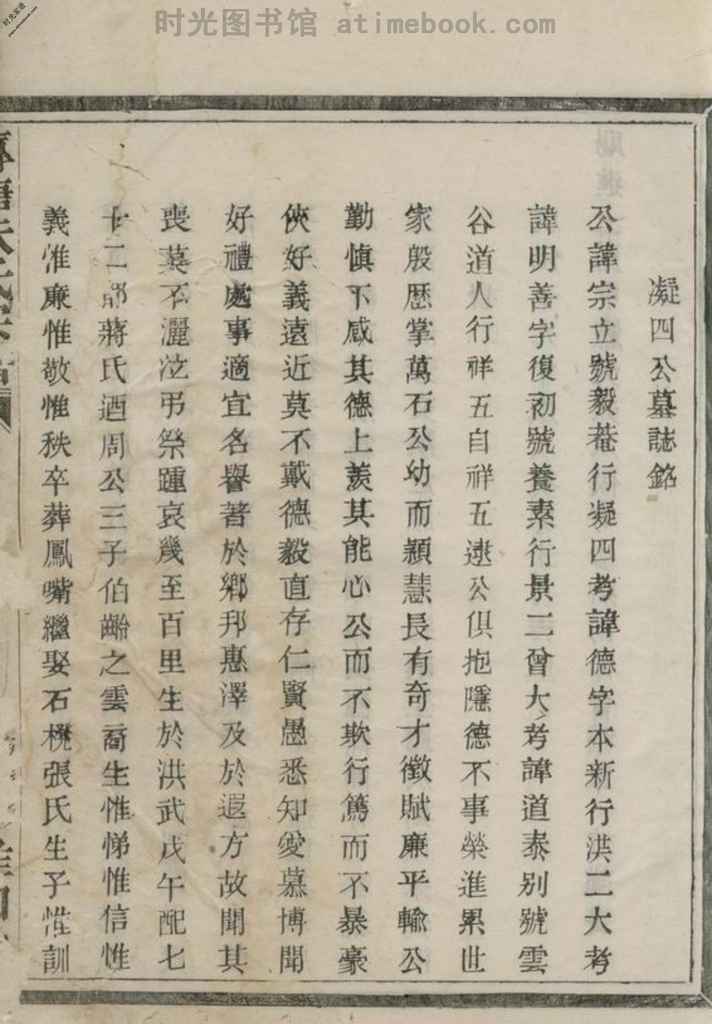 时光图书馆 atimebook.com
凝四公墓誌銘
公諱宗立號毅菴行凝四考諱德字本新行洪二大考
諱明善字復初號養素行景二曾大考諱道泰別號雲
谷道人行祥五自祥五逮公俱抱隱德不事榮進累世
家殷歷掌萬石公幼而穎慧長有奇才徵賦廉平輸公
勤慎下感其德上羨其能心公而不欺行篤而不暴豪
俠好義遠近莫不戴德毅直存仁賢愚悉知愛慕博聞
好禮處事適宜名譽著於鄉邦惠澤及於遐方故聞其
喪莫不灑泣弔祭踵哀幾至百里生於洪武戊午配七
十二都蔣氏迺周公三子伯齡之雲裔生惟悌惟信惟
義惟廉惟敬惟秩卒葬鳳嘴繼娶石櫈張氏生子惟訓